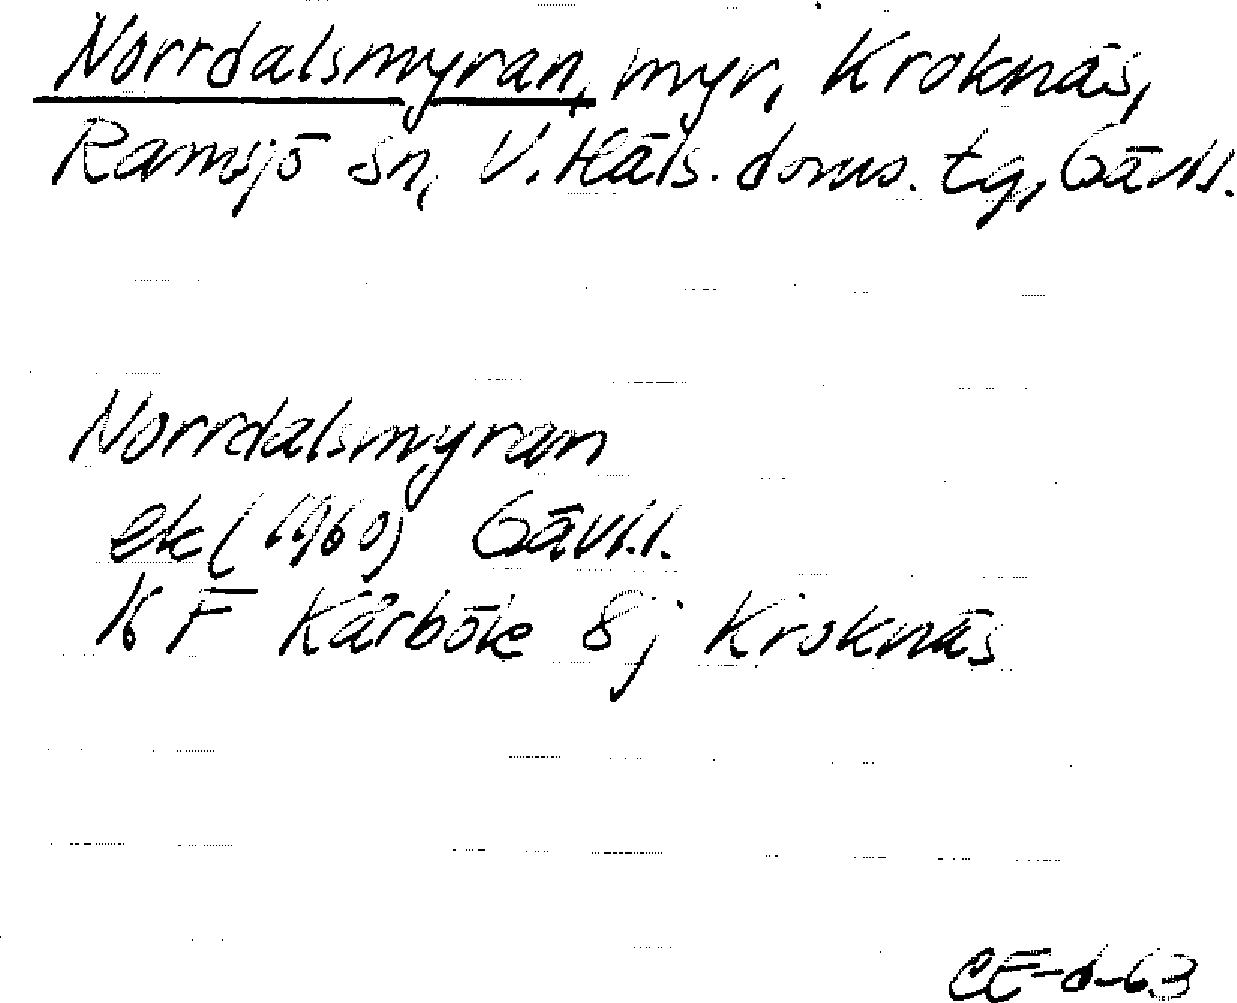 Norrdalsmyran, myr, Kroknäs,
Ramsjö sn, V. Häls. doms. tg, Gävl.l.
Norrdalsmyran
ek (1960) Gävl.l.
16 F Kårböle 8j Kroknäs
CE-d-63